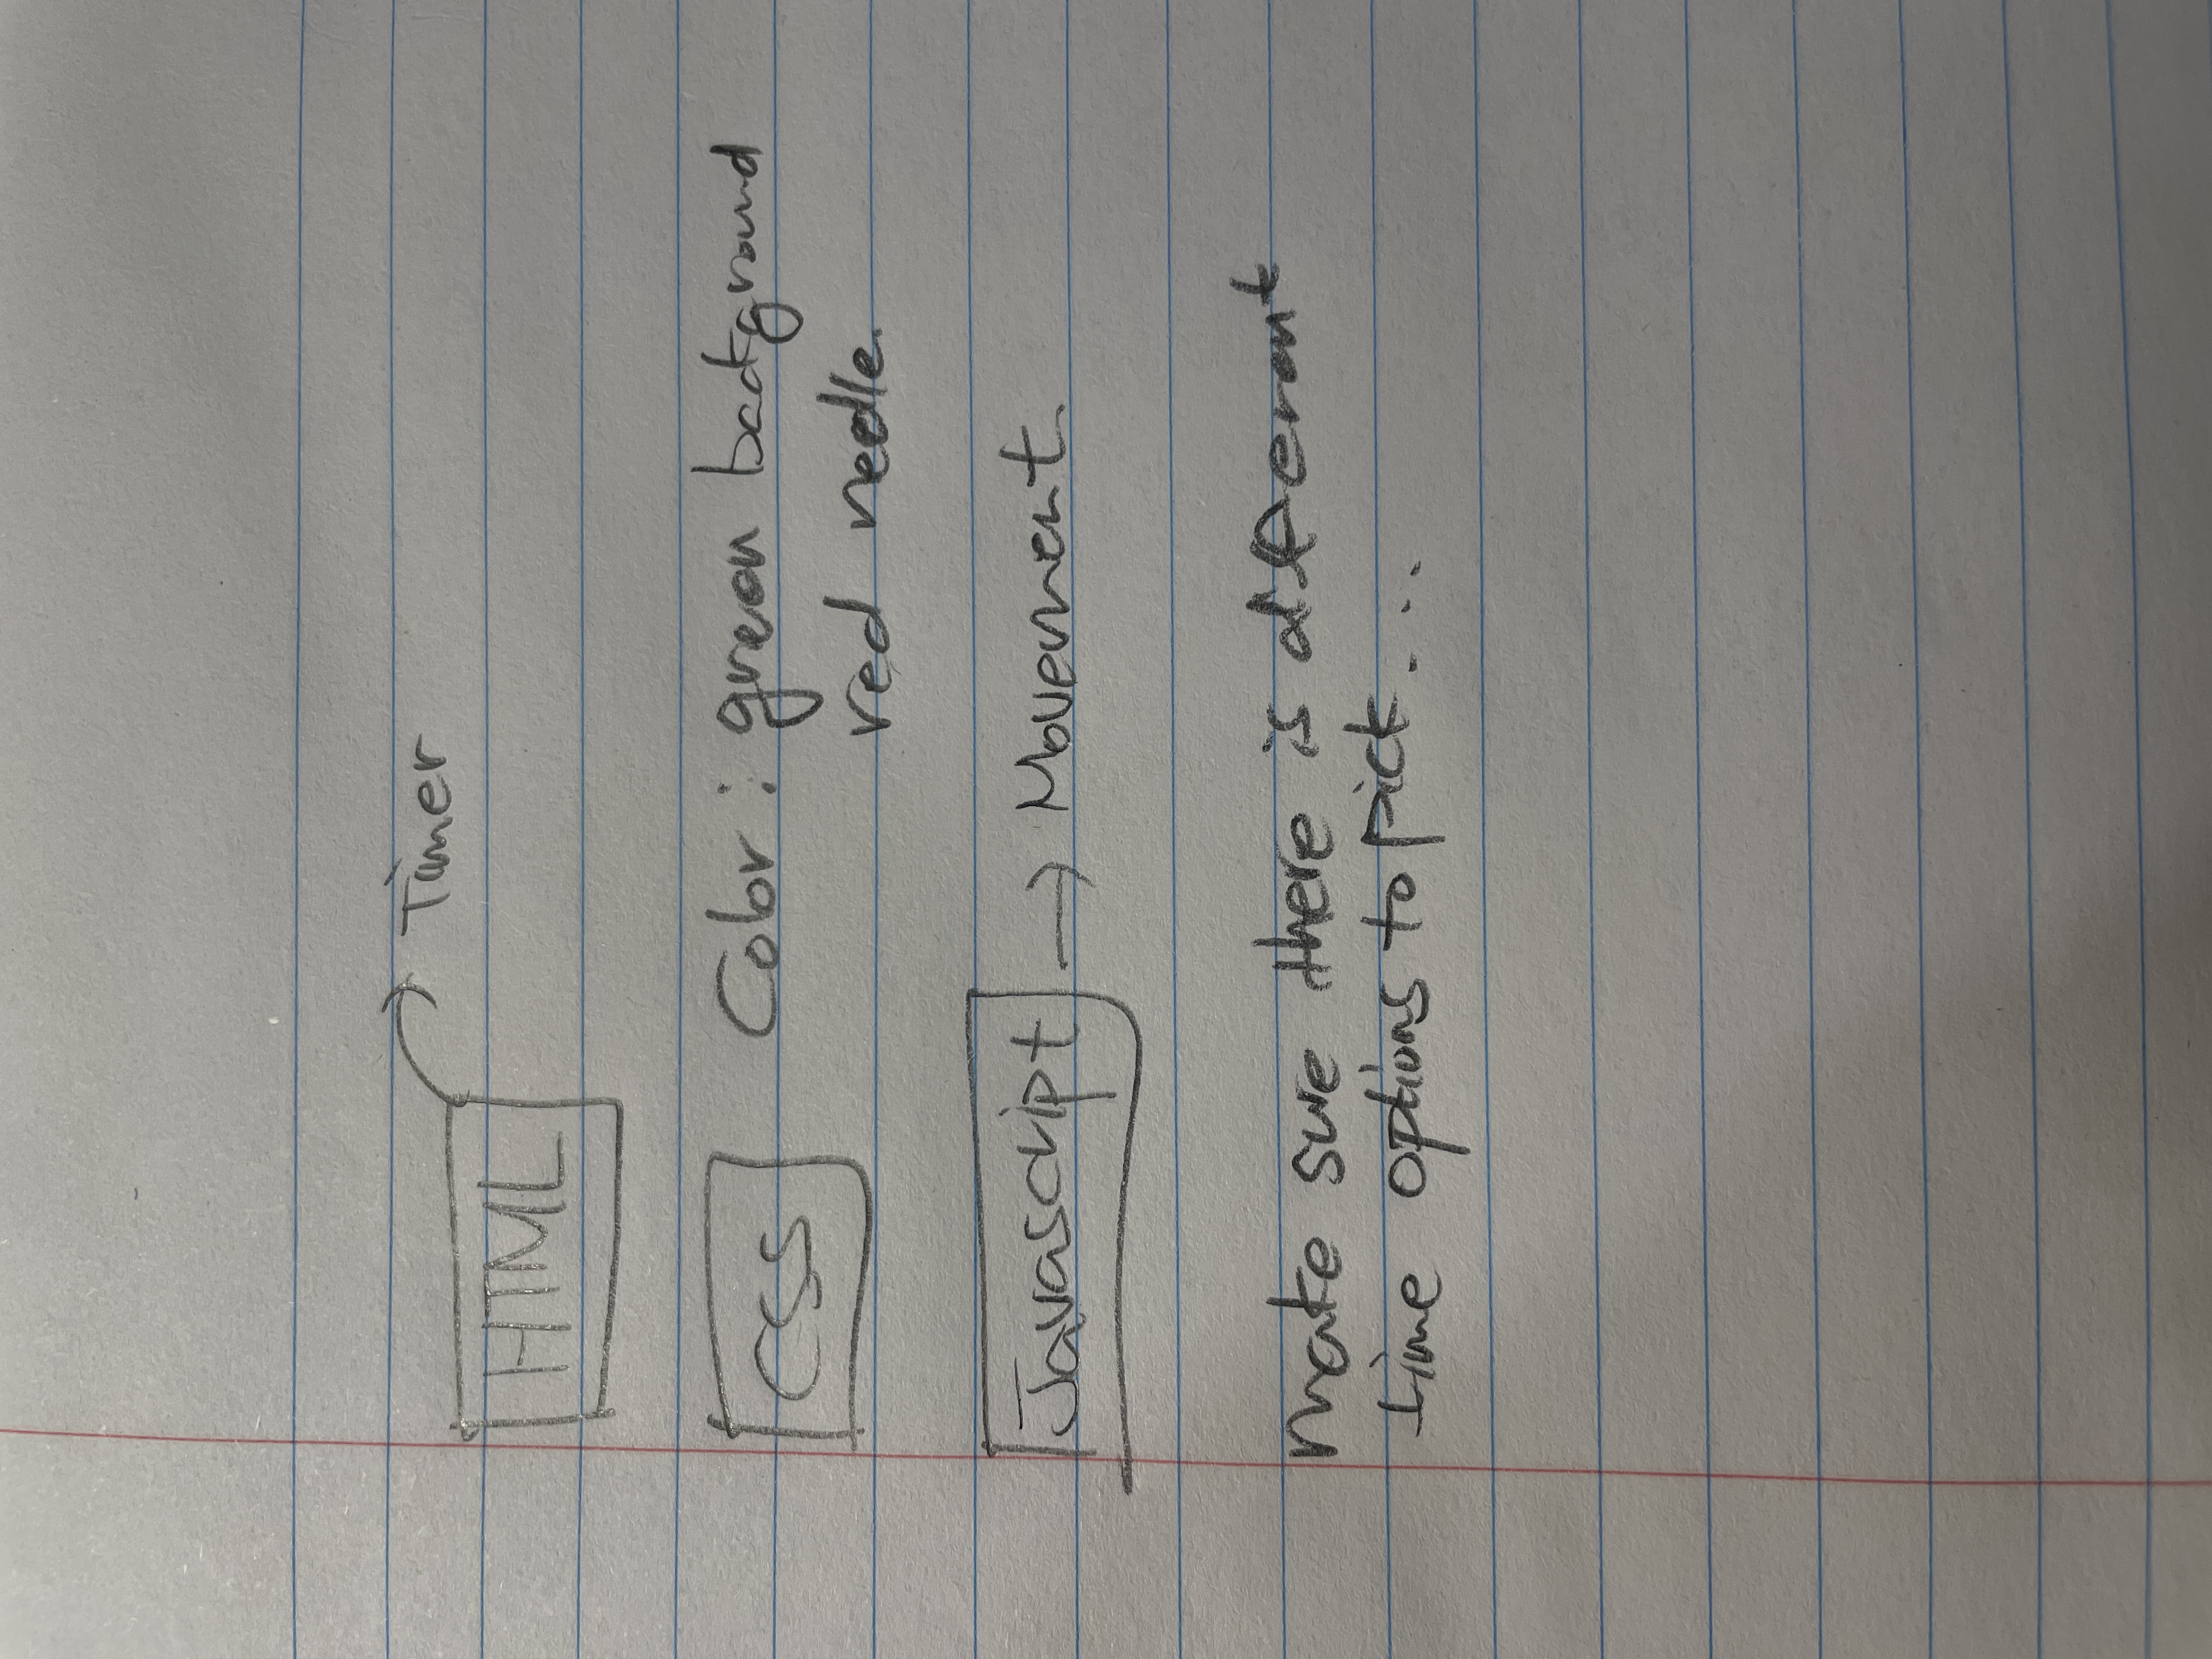 Timer
HTML
CSS Color: green background
red needle.
Javascript → Movement.
Make sure there is different
time options to pick...